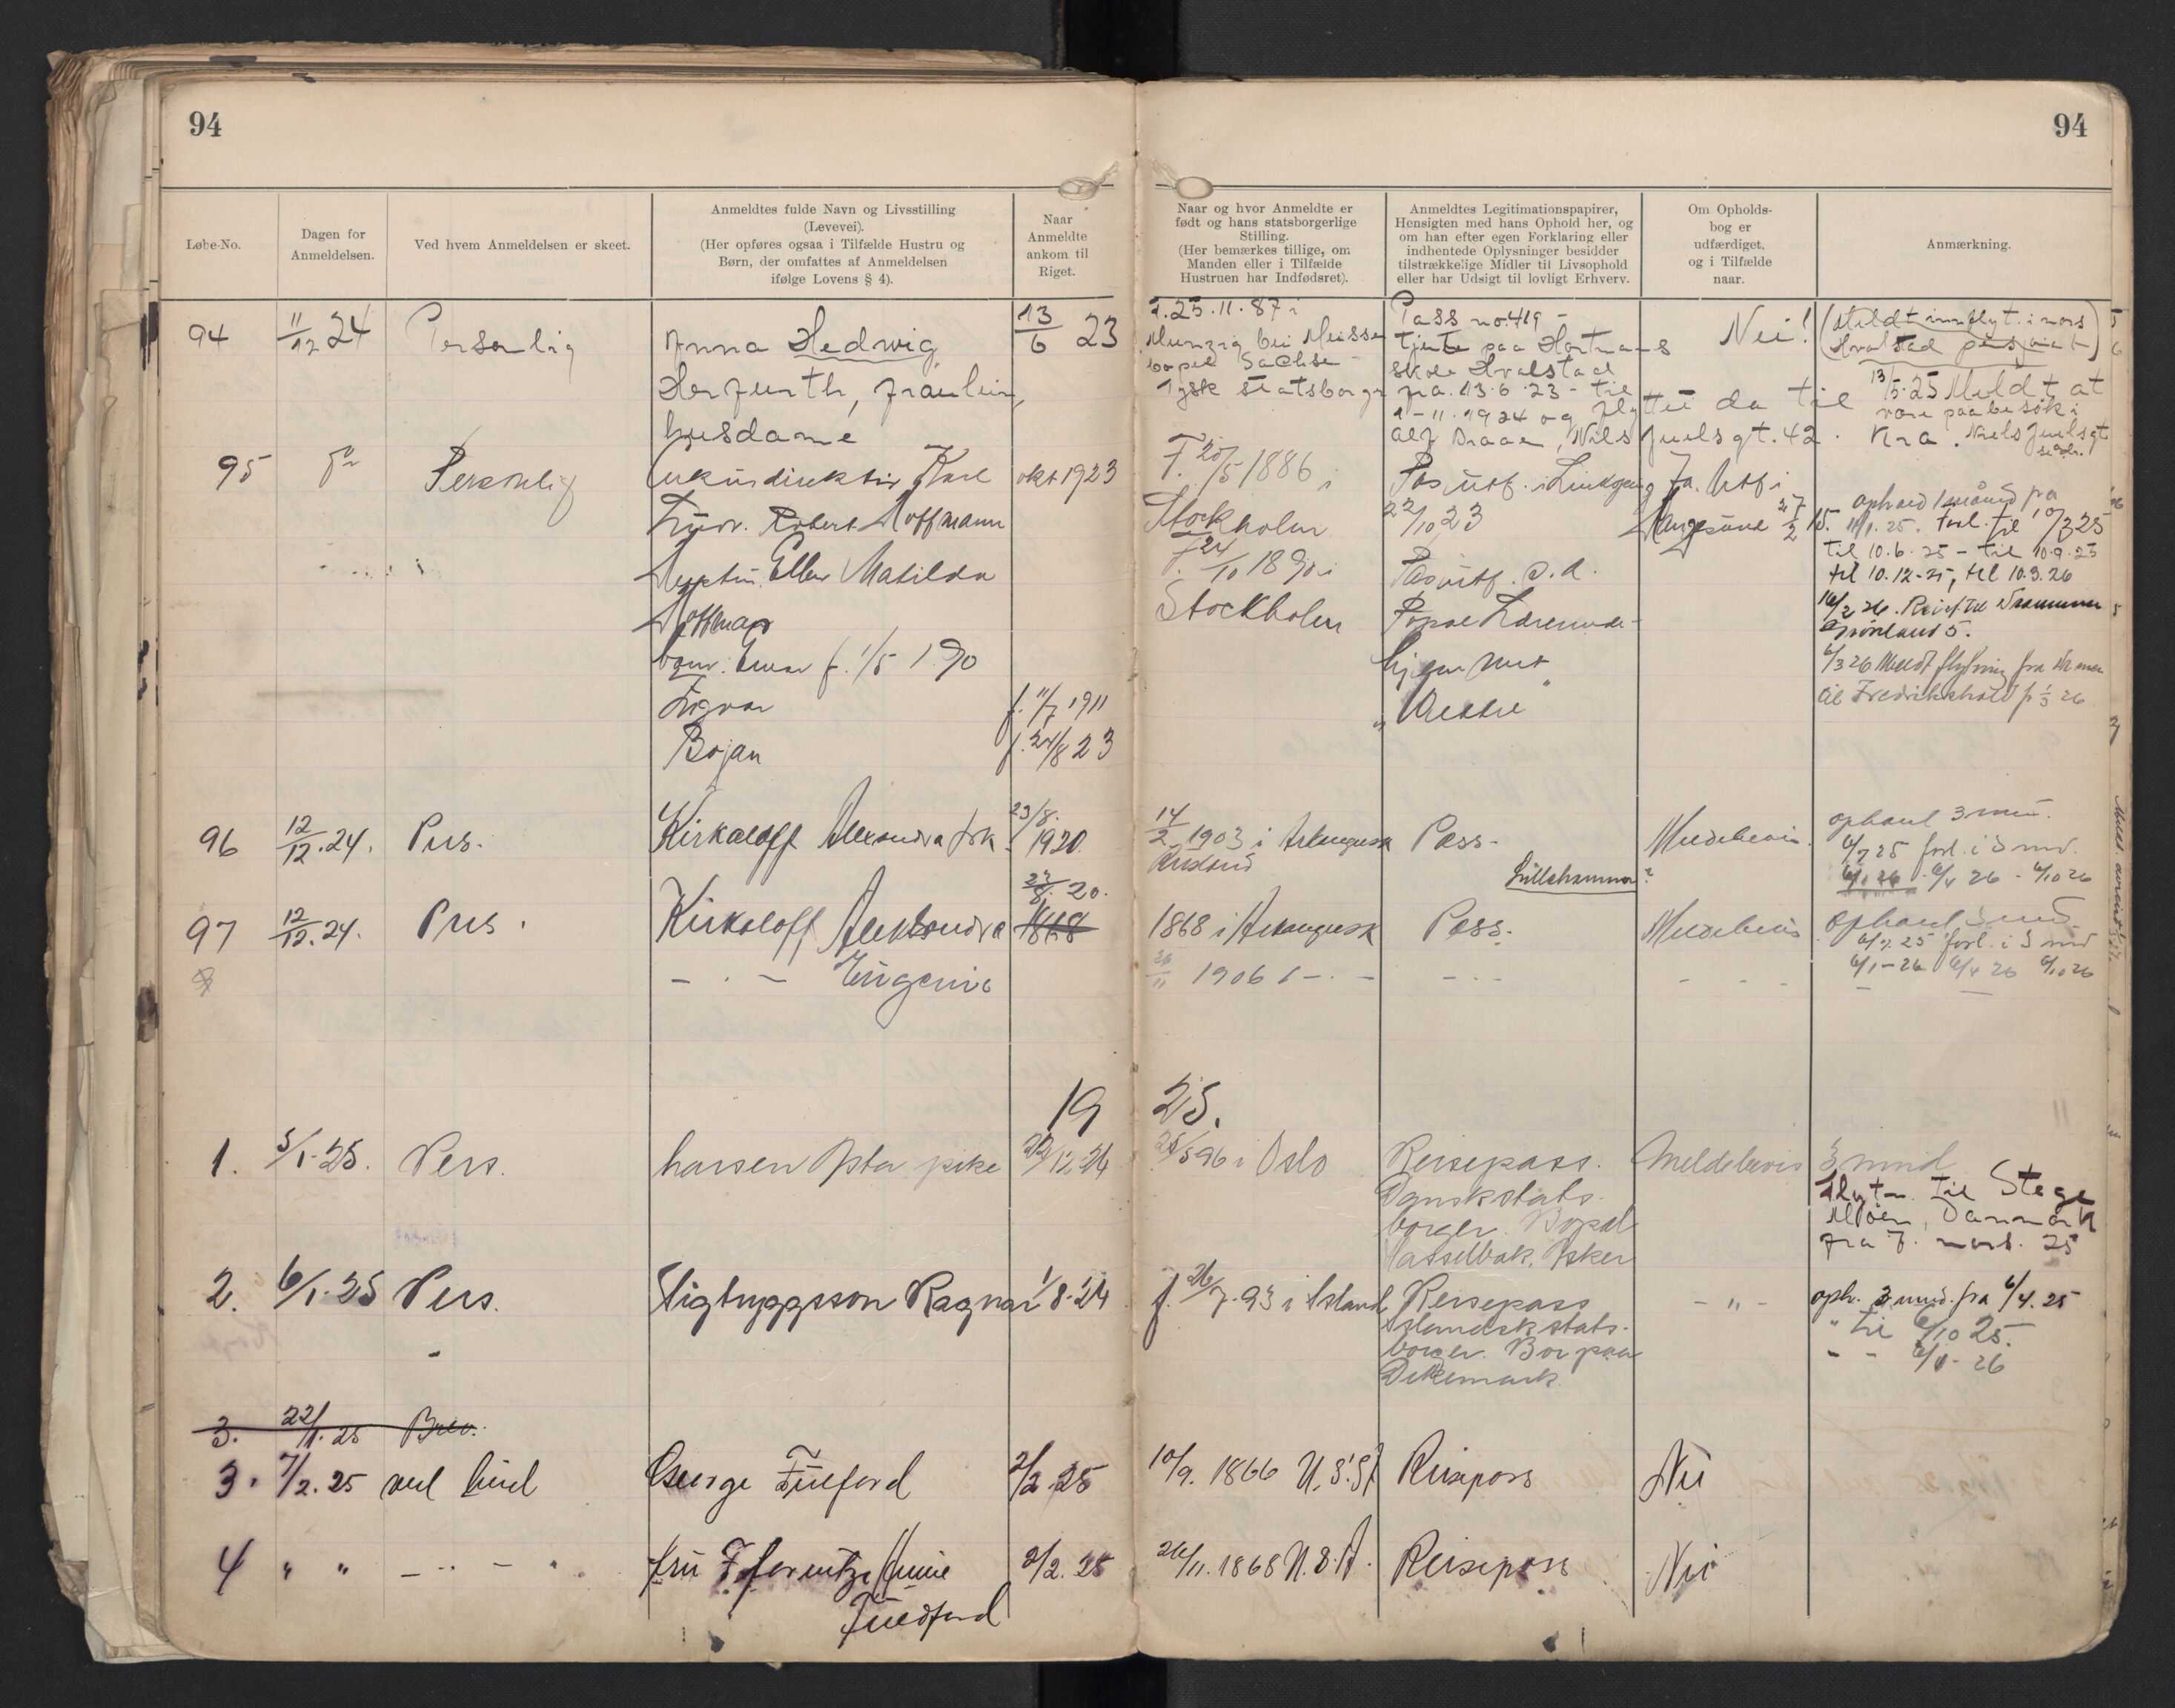 94
94
Løbe-No.
Dagen for
Anmeldelsen.
Ved hvem Anmeldelsen er skeet.
Anmeldtes fulde Navn og Livsstilling
(Levevei).
(Her opføres ogsaa i Tilfælde Hustru og
Børn, der omfattes af Anmeldelsen
ifølge Lovens § 4).
Naar
Anmeldte
ankom til
Riget.
Naar og hvor Anmeldte er
født og hans statsborgerlige
Stilling.
(Her bemærkes tillige, om
Manden eller i Tilfælde
Hustruen har Indfødsret).
Anmeldtes Legitimationspapirer,
Hensigten med hans Ophold her, og
om han efter egen Forklaring eller
indhentede Oplysninger besidder
tilstrækkelige Midler til Livsophold
eller har Udsigt til lovligt Erhverv.
Om Opholds-
bog er
udfærdiget,
og i Tilfælde
naar.
Anmærkning.
94
11/12 24
Personlig
Anna Hedwig
Herfurth, fraulein,
husdame
13/6 23
f. 25.11.87 i
Munzig bei Meissen
bopel Sachse
Tysk statsborgr
Pass no. 419 -
tjente paa Hartmans
skole Hvalstad
fra 13.6.23 - til
1-11.1924 og flyttet da til
Alf Braae, Nils Juelsgt. 42.
Nei!
Hvalstad
13/5.25 Meldt at
være paa besøk i
Kra. Niels Juelsgt
95
Personlig
Karl
Ludv. Robert Hoffmann
Ellen Matilda
Hoffman
f. 1/5 1.90
Ingvar f. 11/7 1911
Bojan f. 24/8 23
okt 1923
F. 20/5 1886 i
Stockholm
F. 24/10 1890 i
Stockholm
Pas utf. i
22/10 23
Pas utf. s. d.
Popoe
hjem
Ja. Utf i
27/2 15.
ophold 1 måned fra
11/1.25. forl. til 10/3 25
til 10.6.25 - til 10.9.25
til 10.12-25, til 10.3.26
16/2 26. Reist til Drammen
Grønland 5.
6/3 26 Meldt flytning fra
til Fredrikshald fr 1/3 26
96
12/12.24.
Pers.
Kirkoloff Alexandra frk.
23/8.
1920
14/2 1903 i Arkangelsk
Rusland
Pass.
Meldebevis.
ophold 3 mnd.
6/7 25 forl. i 3 mnd.
6/1 26 - 6/4 26 - 6/10 26
Lillehammer?
97
12/12.24.
Pers.
Kirkoloff Aleksandra
23/8. 20.
1868
1868 i Arkangelsk
Pass.
Meldebevis
ophold 3 mnd.
6/7 25 forl. i 3 mnd
6/1-26 6/4 26 6/10 26
- . - Eugenie
26/11 1906 i - . -
- . -
19 25.
1.
5/1-25.
Pers.
Larsen Asta pike
22/12.24
25/5 96 i Oslo
Reisepass.
Dansk stats-
borger. Bopæl
Hasselbak, Asker
Meldebevis
3 mnd
Flytn. til Stege
Møen, Danmark
fra 7. novb. 25
2.
6/1-25
Pers.
Sigtryggsson Ragnar
1/8-24
f. 26/7.93 i Island
Reisepass
Islandsk stats-
borger. Bor paa
Dikemark
- " -
oph. 3 mnd. fra 6/4.25
" til 6/10 25.
- - 6/1-26
3. 22/1.25 Brev.
3.
7/2.25
ved bud
George Fulford
2/2.25
10/9. 1866 U.S.A
Reisepass
Nei
4 " "
Fru
Annie
Fulford
2/2.25
26/11.1868 U.S.A.
Reisepass
Nei